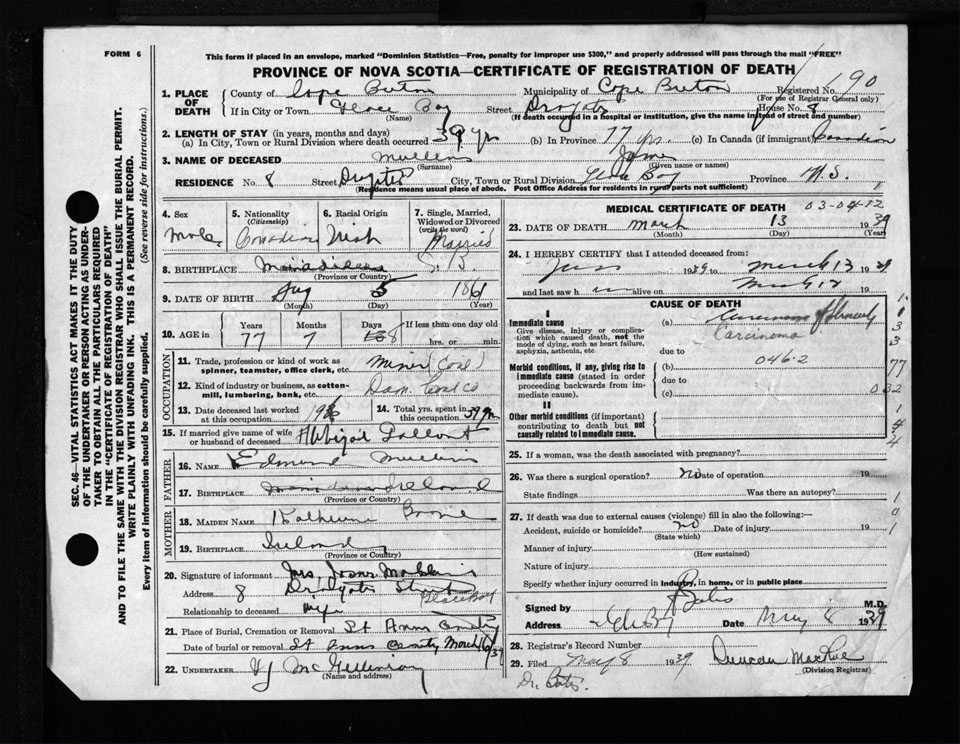 FORM 6
This form if placed in an envelope, marked "Dominion Statistics—Free, penalty for improper use $300," and properly addressed will pass through the mail "FREE"
PROVINCE OF NOVA SCOTIA—CERTIFICATE OF REGISTRATION OF DEATH
1. PLACE OF DEATH
County of Cape Breton Municipality of Cape Breton Registered No. 90
(For use of Registrar General only)
If in City or Town Glace Bay Street House No. 8
(Name) (If death occurred in a hospital or institution, give the name instead of street and number)
2. LENGTH OF STAY (in years, months and days)
(a) In City, Town or Rural Division where death occurred 39 yrs (b) In Province 77 yrs. (c) In Canada (if immigrant) Canadian
3. NAME OF DECEASED Mullins James
(Surname) (Given name or names)
RESIDENCE No. 8 Street City, Town or Rural Division Glace Bay Province N.S.
(Residence means usual place of abode. Post Office Address for residents in rural parts not sufficient)
SEC. 46—VITAL STATISTICS ACT MAKES IT THE DUTY
OF THE UNDERTAKER OR PERSON ACTING AS UNDER-
TAKER TO OBTAIN ALL THE PARTICULARS REQUIRED
IN THE "CERTIFICATE OF REGISTRATION OF DEATH"
AND TO FILE THE SAME WITH THE DIVISION REGISTRAR WHO SHALL ISSUE THE BURIAL PERMIT.
WRITE PLAINLY WITH UNFADING INK. THIS IS A PERMANENT RECORD.
Every item of information should be carefully supplied. (See reverse side for instructions.)
4. Sex
Male
5. Nationality
(Citizenship)
Canadian
6. Racial Origin
Irish
7. Single, Married,
Widowed or Divorced
(write the word)
Married
8. BIRTHPLACE C.B.
(Province or Country)
9. DATE OF BIRTH Aug 5 1861
(Month) (Day) (Year)
10. AGE in
Years Months Days If less than one day
77 7 8 hrs. or min.
OCCUPATION
11. Trade, profession or kind of work as
spinner, teamster, office clerk, etc. Miner (Coal)
12. Kind of industry or business, as cotton-
mill, lumbering, bank, etc. Dom. Coal Co
13. Date deceased last worked
at this occupation
14. Total yrs. spent in
this occupation 39 yrs
15. If married give name of wife
or husband of deceased Abbigail
FATHER
16. Name Edmund Mullins
17. BIRTHPLACE
(Province or Country)
MOTHER
18. MAIDEN NAME Katherine
19. BIRTHPLACE Ireland
(Province or Country)
20. Signature of informant Mrs, James Mullins
Address 8 Street Glace Bay
Relationship to deceased wife
21. Place of Burial, Cremation or Removal St Anns Cemetry
Date of burial or removal St Anns Cemetry March 16/39
22. UNDERTAKER
(Name and address)
MEDICAL CERTIFICATE OF DEATH 03-04-12
23. DATE OF DEATH March 13 1939
(Month) (Day) (Year)
24. I HEREBY CERTIFY that I attended deceased from:
19 to March 13 1939
and last saw h alive on 19
CAUSE OF DEATH
I
Immediate cause
Give disease, injury or complica-
tion which caused death, not the
mode of dying, such as heart failure,
asphyxia, asthenia, etc
(a) Carcinoma of Stomach
Carcinoma
due to
Morbid conditions, if any, giving rise to
immediate cause (stated in order
proceeding backwards from im-
mediate cause).
(b) 046-2
due to
(c) 032
II
Other morbid conditions (if important)
contributing to death but not
causally related to immediate cause.
25. If a woman, was the death associated with pregnancy?
26. Was there a surgical operation? no Date of operation 19
State findings Was there an autopsy?
27. If death was due to external causes (violence) fill in also the following:—
Accident, suicide or homicide? no Date of injury 19
(State which)
Manner of injury
(How sustained)
Nature of injury
Specify whether injury occurred in industry, in home, or in public place
Signed by M.D.
Address Date May 8 1939
28. Registrar's Record Number
29. Filed May 8 1939 Duncan MacRae
(Division Registrar)
Dr. Bates.